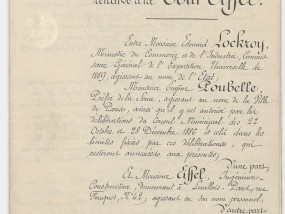 relative à la Tour Eiffel.
Entre Monsieur Edouard Lockroy,
Ministre du Commerce et de l'Industrie, Commis-
saire Général de l'Exposition Universelle de
1889, agissant au nom de l'Etat;
Monsieur Eugène Poubelle,
Préfet de la Seine, agissant au nom de la Ville
de Paris, ainsi qu'il y est autorisé par les
délibérations du Conseil Municipal des 22
Octobre et 28 Décembre 1886 et cela dans les
limites fixées par ces délibérations, qui
resteront annexées aux présentes;
D'une part,
Et Monsieur Eiffel, Ingénieur-
Constructeur, demeurant à Levallois-Perret, rue
Fouquet, N° 42, agissant en son nom personnel,
D'autre part,